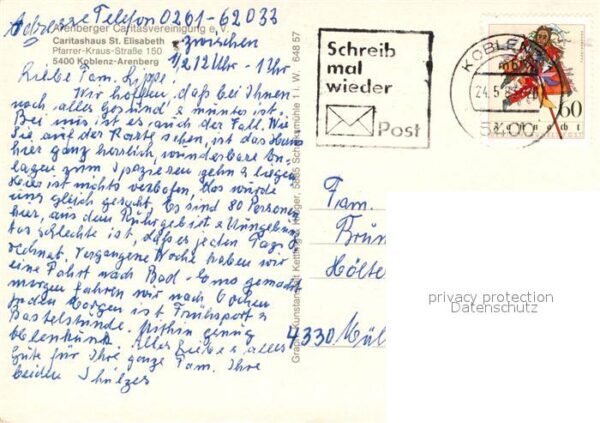 Adresse Telefon 0261-62033
Arenberger Caritasvereinigung e.V.
Caritashaus St. Elisabeth
Pfarrer-Kraus-Straße 150
5400 Koblenz-Arenberg
zwischen
1/2 12 Uhr - 1 Uhr
Liebe Fam. Lippe!
Wir hoffen, daß bei Ihnen
noch alles gesund & munter ist.
Bei uns ist es auch der Fall. Wie
Sie auf der Karte sehen, ist das Haus
hier ganz herrlich, wunderbare An-
lagen zum Spazieren gehn & liegen.
Hier ist nichts verboten, das wurde
uns gleich gesagt. Es sind 80 Personen
hier, aus dem Ruhrgebiet & Umgebung.
Das schlechte ist, daß es jeden Tag
regnet. Vergangene Woche haben wir
eine Fahrt nach Bad-Ems gemacht
morgen fahren wir nach Cochem
Jeden Morgen ist Frühsport &
Bastelstunde. Mithin genug
Ablenkung. Alles Liebe & alles
Gute für Ihre ganze Fam. Ihre
beiden Schulzes
Graph. Kunstanstalt Kettling & Krüger, 5885 Schalksmühle 1 i. W. 648 57
Schreib
mal
wieder
Post
KOBLENZ
24.5.83
5400
60
Fam.
Brun
Hölte
4330 Mül
privacy protection
Datenschutz